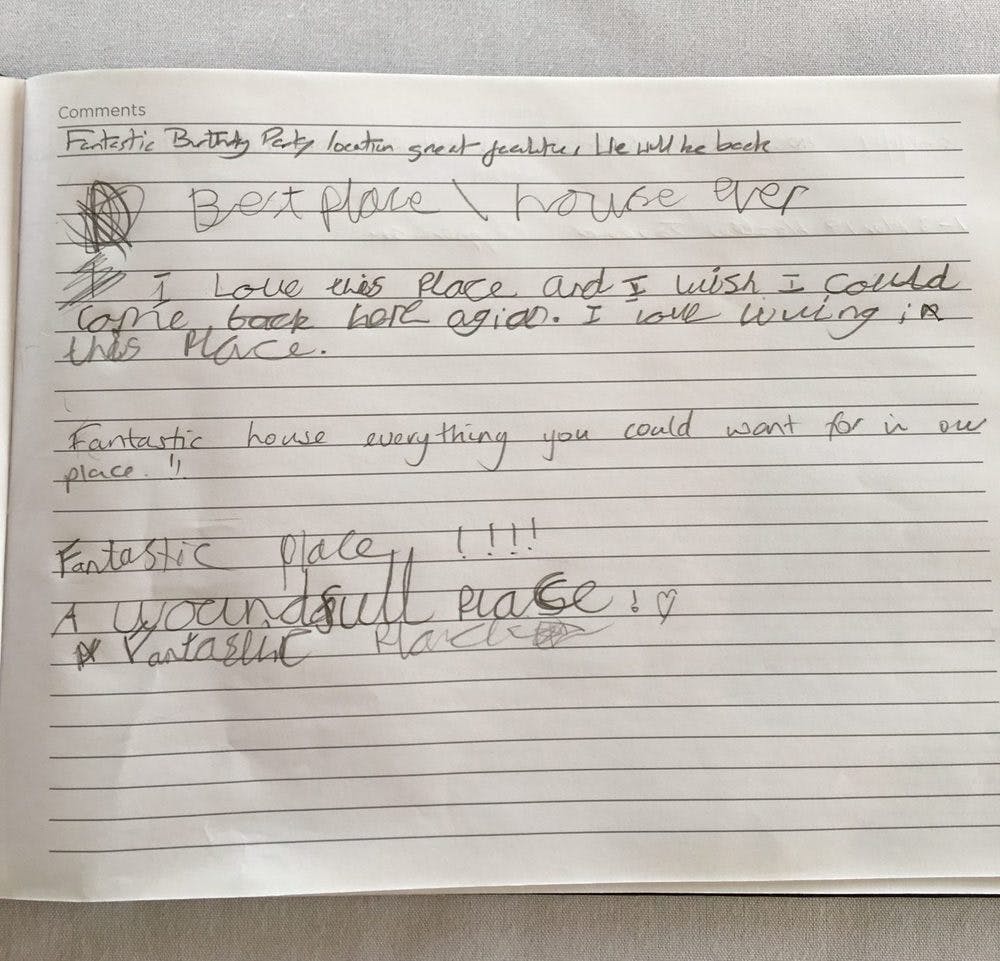 Comments
Fantastic Birthday Party location great facilities We will be back
Best place \ house ever
I Love this Place and I wish I could
come back here agian. I love living in
this Place.
Fantastic house everything you could want for in one
place !!
Fantastic place !!!!
A woundfull place ! ♡
Fantastic